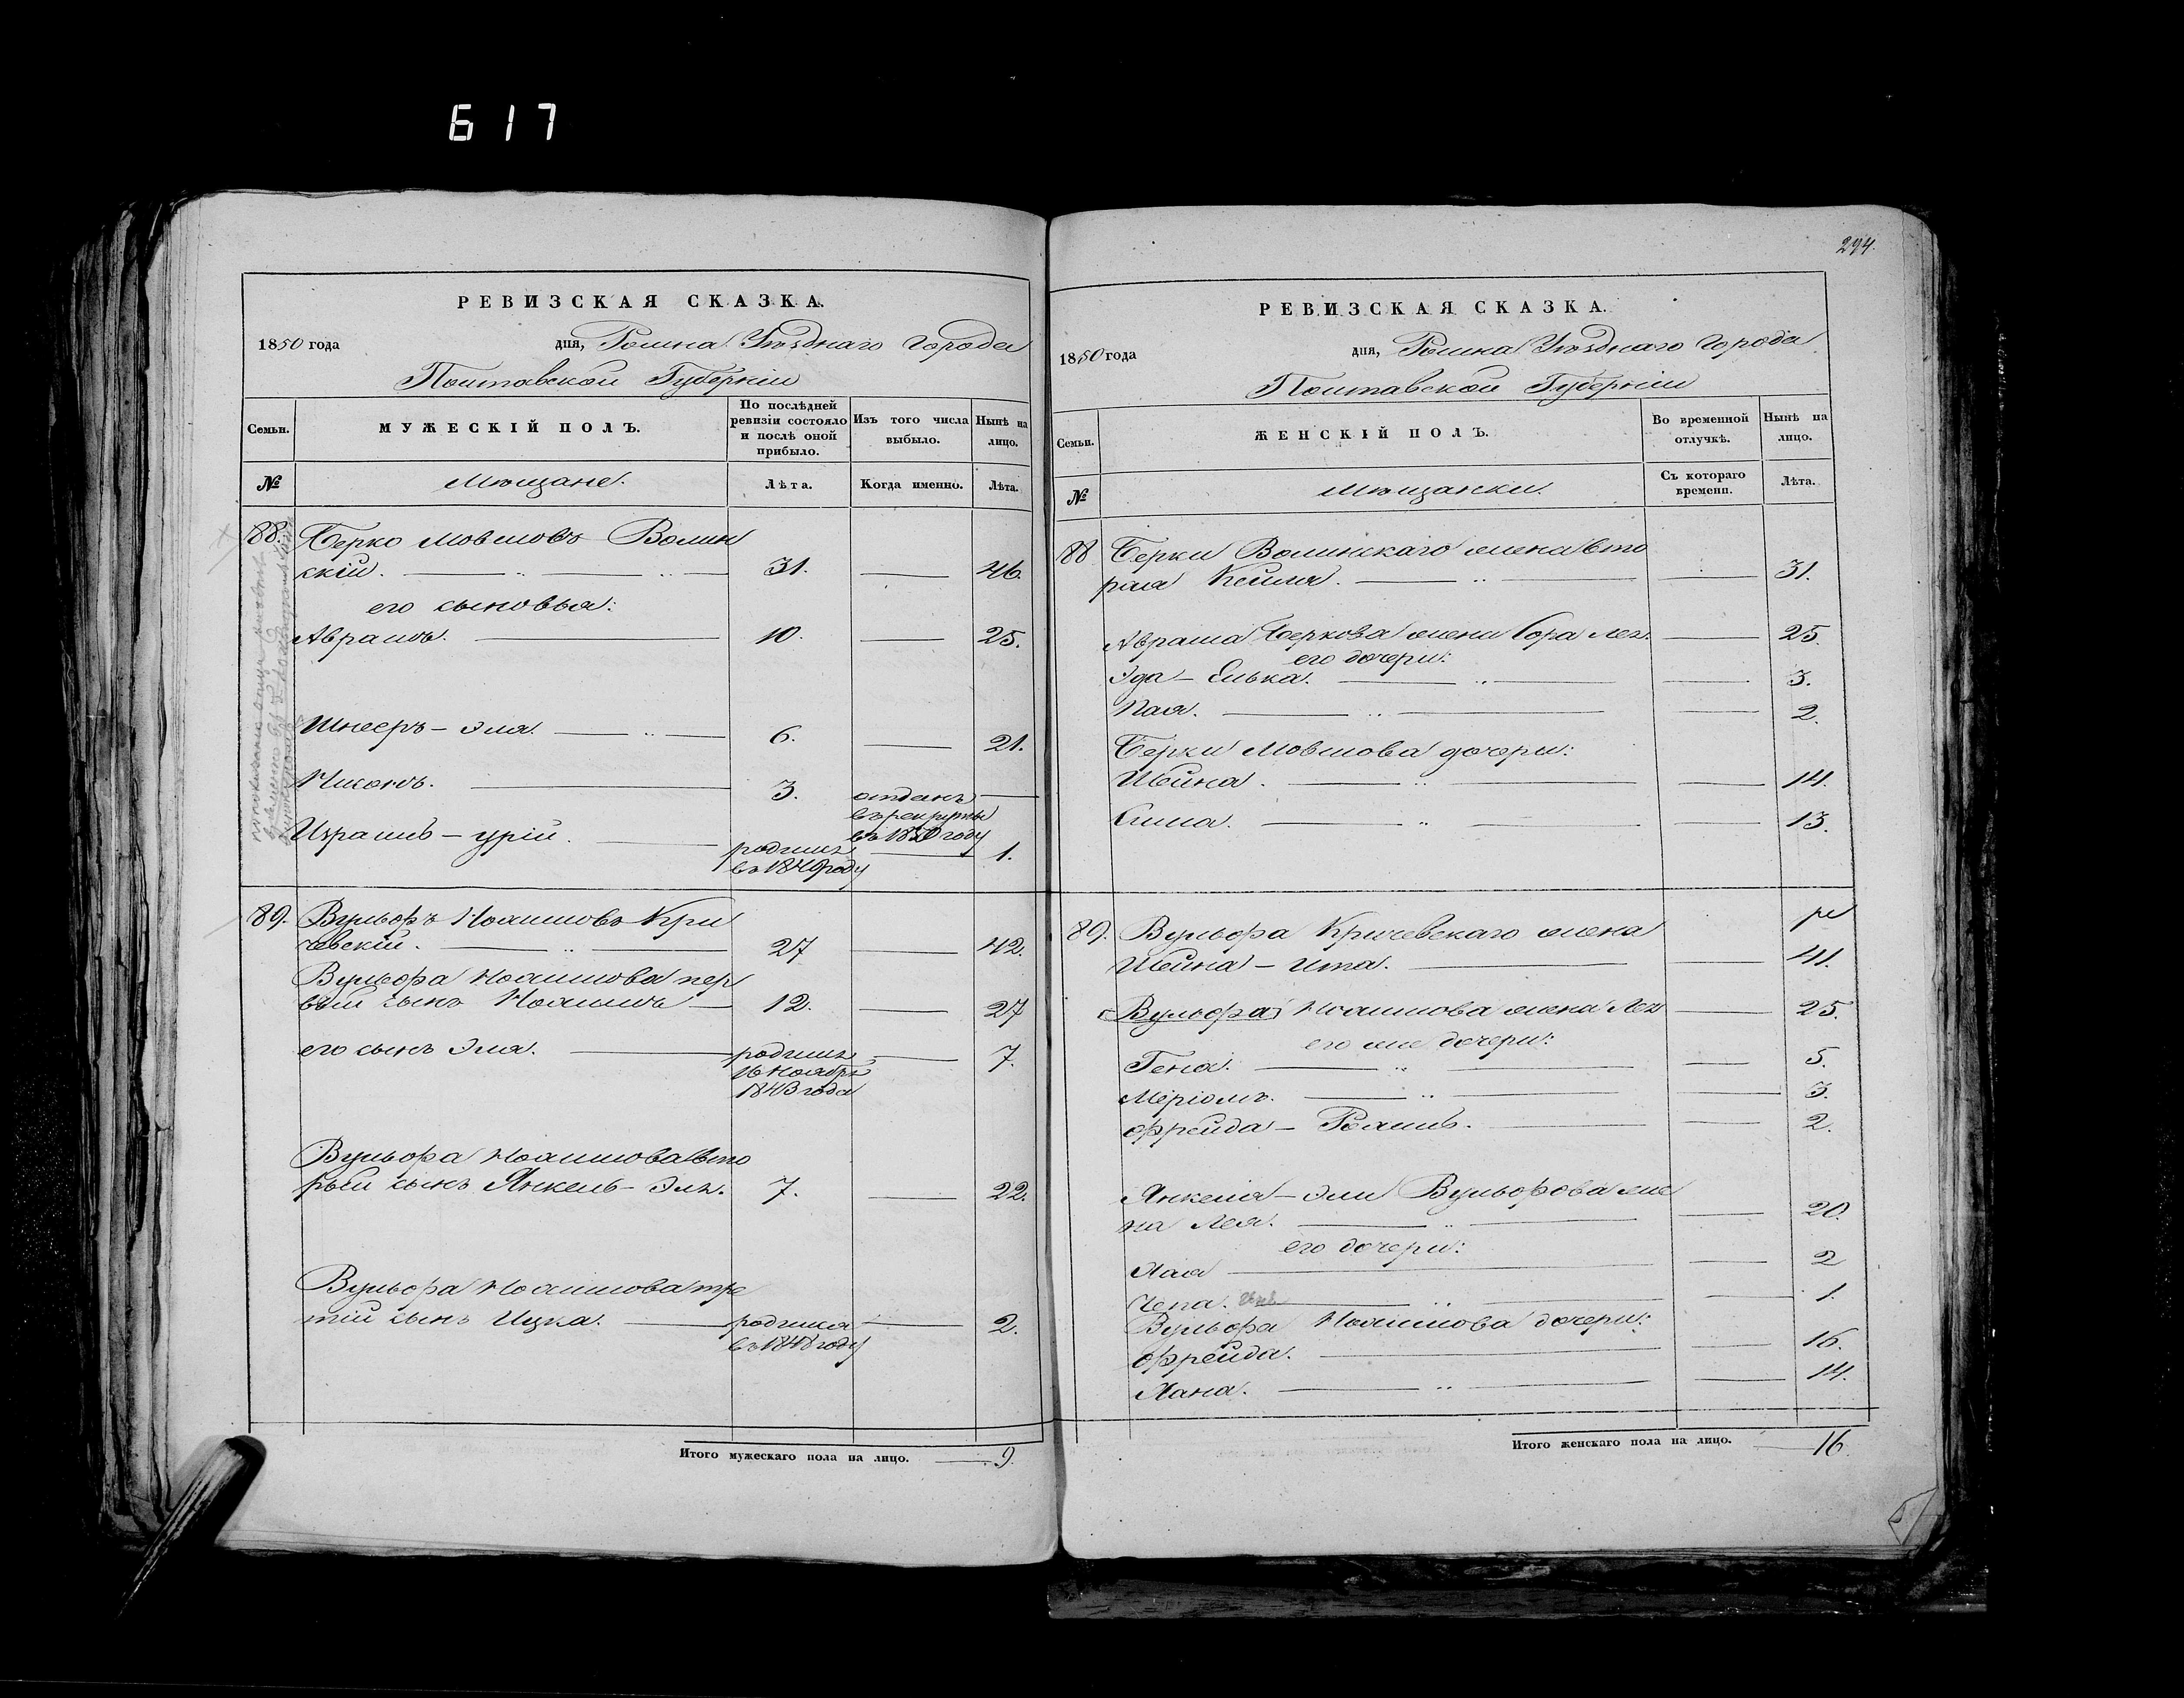 617
294.
РЕВИЗСКАЯ СКАЗКА.
1850 года дня, Ромна Уѣзднаго города
Полтавской Губерніи
Семьи.
МУЖЕСКІЙ ПОЛЪ.
По послѣдней ревизіи состояло и послѣ оной прибыло.
Изъ того числа выбыло.
Нынѣ на лицо.
№
Мѣщане.
Лѣта.
Когда именно.
Лѣта.
88. Берко Мовшовъ Волин
скій. 31. 46.
его сыновья:
Аврамъ. 10. 25.
Шнееръ-Эля. 6. 21.
Нисонъ. 3. отданъ
въ рекруты
въ 1850 году
Израиль-Урій. родился 1.
въ 1849 году
89. Вульфъ Хаимовъ Кри
чевскій. 27 42.
Вульфа Хаимова пер
вый сынъ Хаимъ 12. 27
его сынъ Эля. родился 7.
16 Ноября
1843 года
Вульфа Хаимова вто
рый сынъ Янкель-Эля. 7. 22.
Вульфа Хаимова тре
тій сынъ Ицка. родился 2.
въ 1848 году
Итого мужескаго пола на лицо. 9.
РЕВИЗСКАЯ СКАЗКА.
1850 года дня, Ромна Уѣзднаго города
Полтавской Губерніи
Семьи.
ЖЕНСКІЙ ПОЛЪ.
Во временной отлучкѣ.
Нынѣ на лицо.
№
Мѣщанки.
Съ котораго времени.
Лѣта.
88 Берки Волинскаго жена вто
рая Кейля. 31.
Аврама Беркова жена Сора Лея 25
его дочери:
Эда-Элька. 3.
Хая. 2.
Берки Мовшова дочери:
Шейна. 14.
Сима. 13.
89. Вульфа Кричевскаго жена
Шейна-Ита. 41.
Вульфа Хаимова жена Лея 25.
его же дочери:
Гена. 5.
Меріомъ. 3.
Фрейда-Рохиль. 2.
Янкеля-Эли Вульфова же
на Лея. 20.
его дочери:
Хая 2
Чепа. 1.
Вульфа Хаимова дочери:
Фрейда. 16.
Хана. 14.
Итого женскаго пола на лицо. 16.